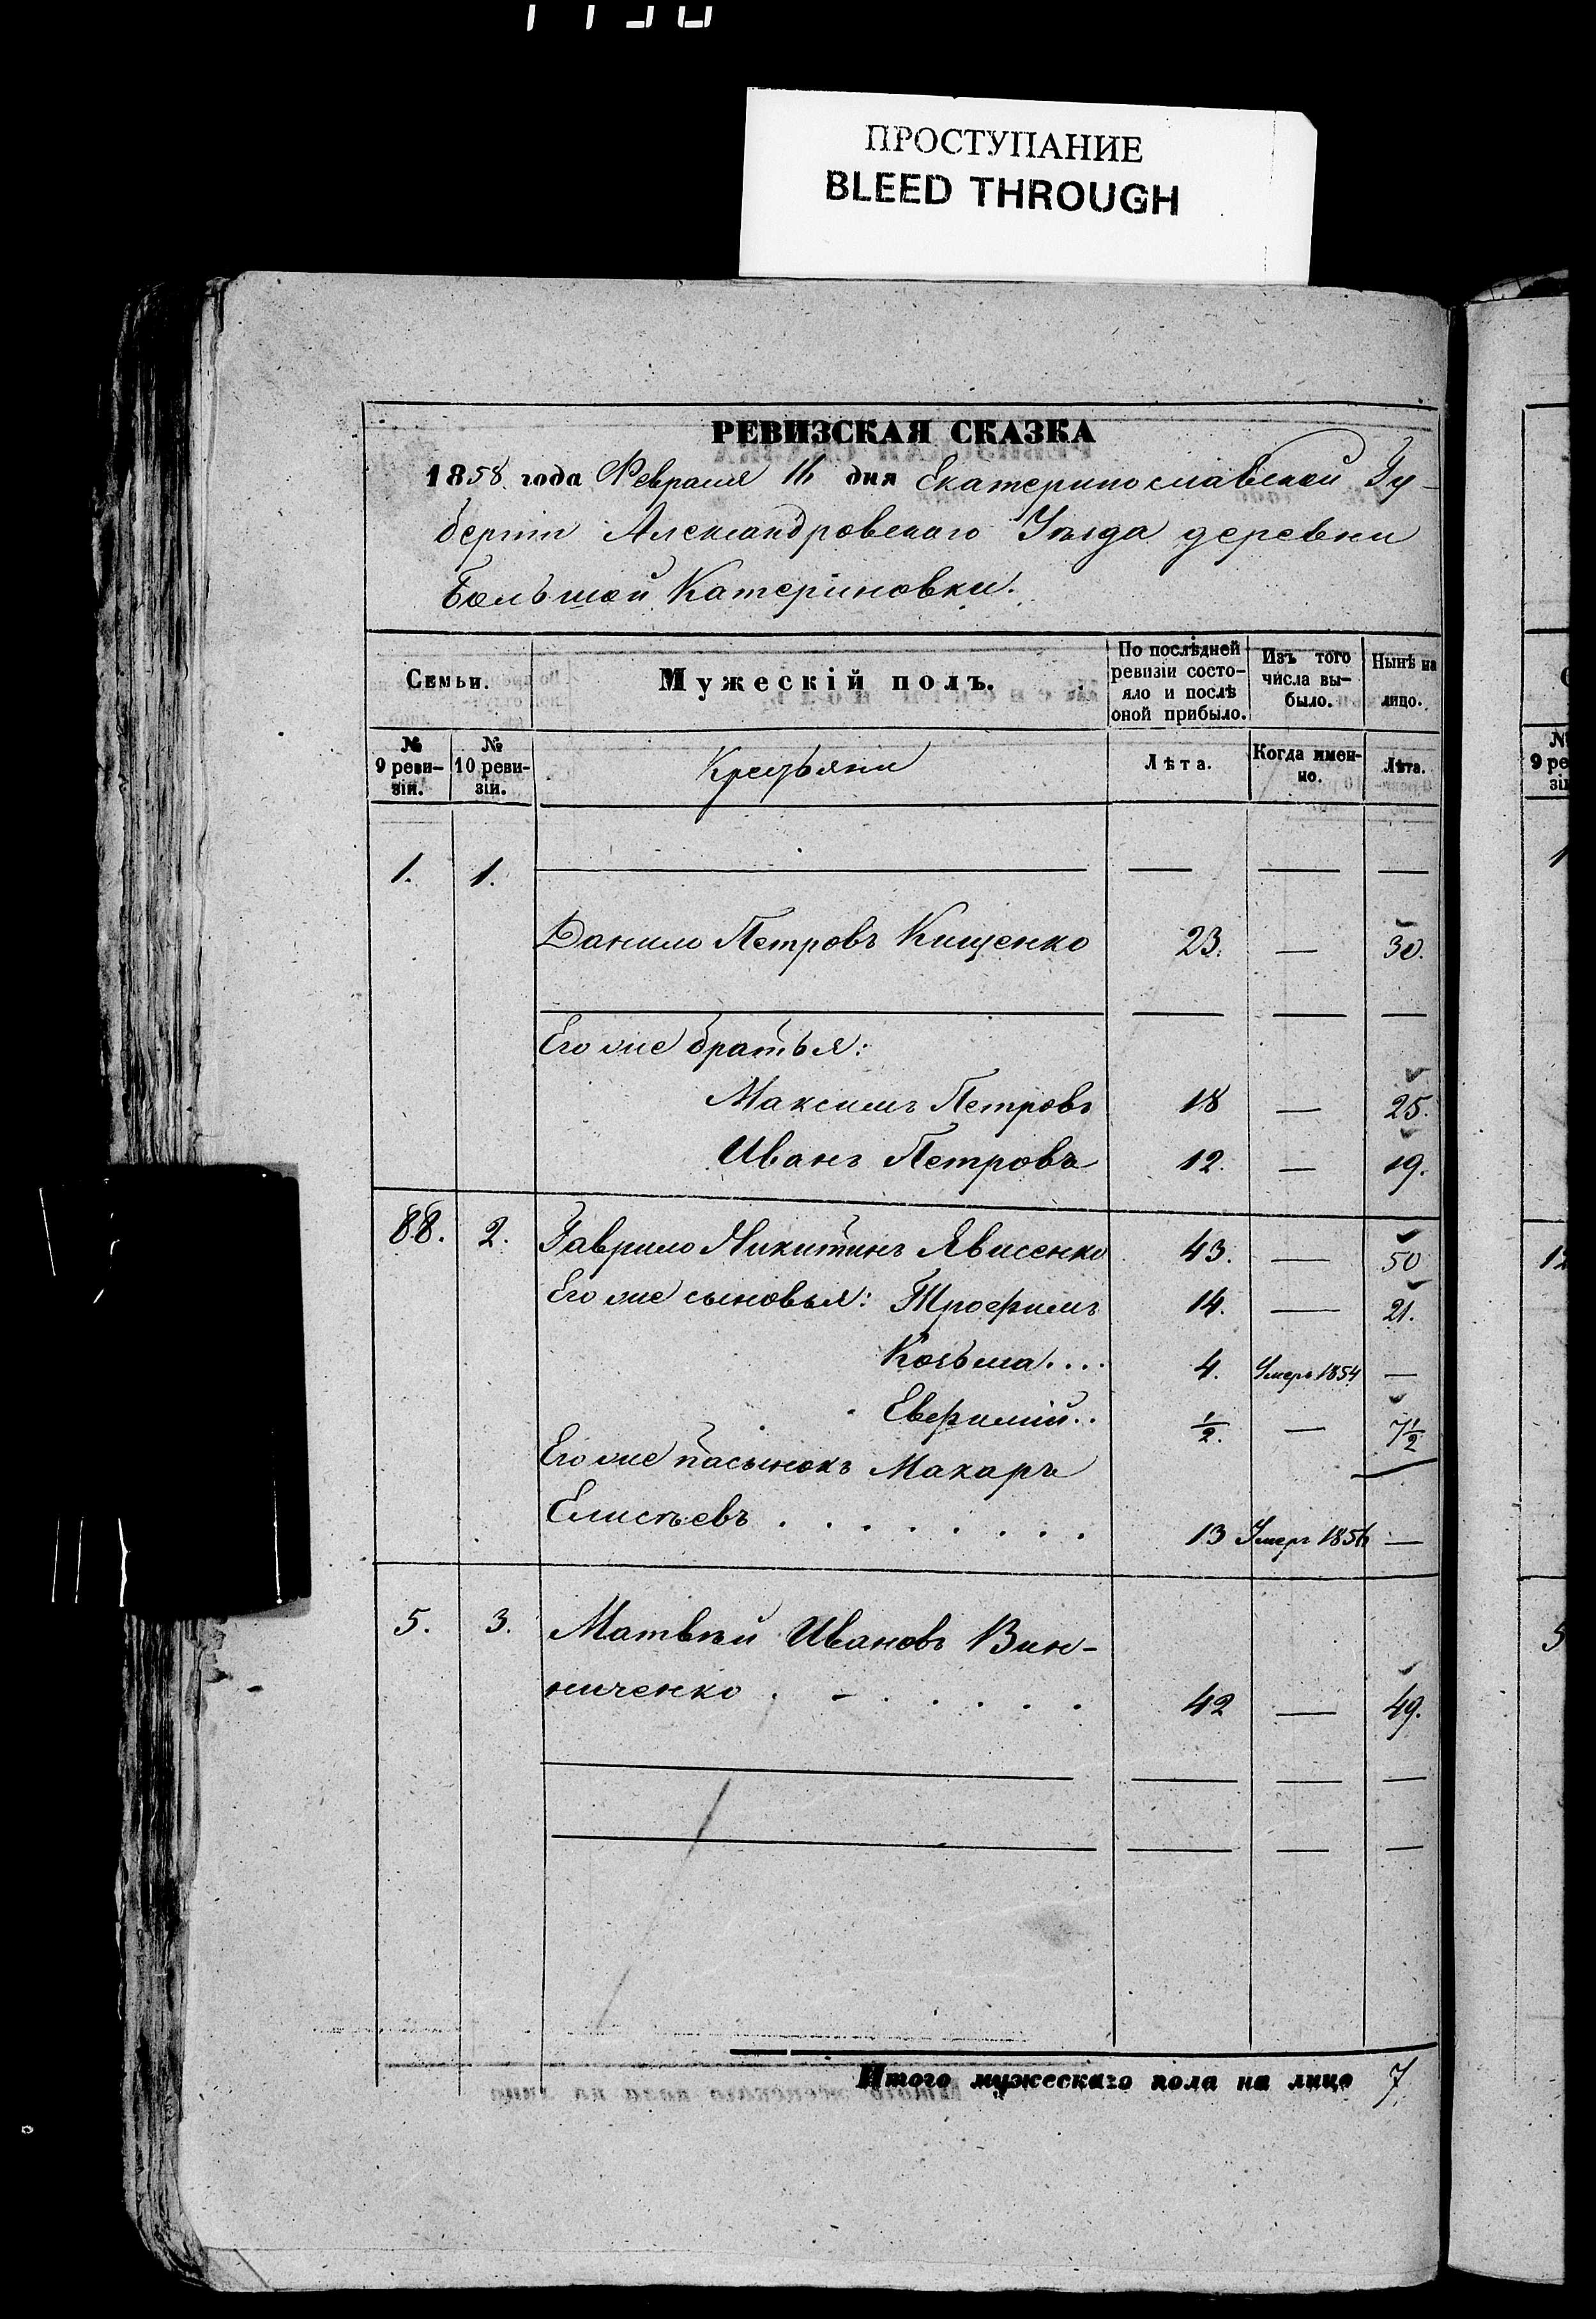 ПРОСТУПАНИЕ
BLEED THROUGH
РЕВИЗСКАЯ СКАЗКА
1858. года Февраля дня Екатеринославской Гу-
берніи Александровскаго Уѣзда деревни
Большой Катериновки.
Семьи.
Мужескій полъ.
По послѣдней ревизіи состо-яло и послѣ оной прибыло.
Изъ того числа вы-было.
Нынѣ на лицо.
№ 9 реви-зіи.
№ 10 реви-зіи.
Крестьяни
Лѣта.
Когда имен-но.
Лѣта.
1. 1.
Данило Петровъ Кищенко 23. — 30.
Его же братья:
Максимъ Петровъ 18 — 25.
Иванъ Петровъ 12. — 19.
88. 2. Гаврило Никитинъ 43. — 50
Его же сыновья: Трофимъ 14. — 21.
Козьма.... 4. Умеръ 1854 —
Евфимій.. ½. — 7½
Его же пасынокъ Макаръ
Елисѣевъ . . . . . . . . 13 Умеръ 1856 —
5. 3. Матвѣй Ивановъ Вин-
ниченко . - . . . . 42 — 49.
Итого мужескаго пола на лицо 7